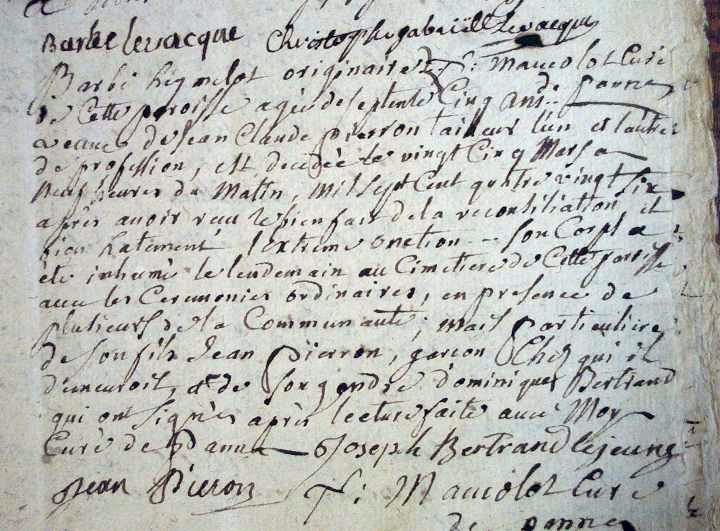 Barbe levacque Christophe gabrielle Levacque
Barbe originaire f: Mauclot Curé
de Cette paroisse agée de septente Cinq ans.. de panne
veauve de Jean Claude pierron tailleur l'un et l'autre
de profession, est decedée le vingt Cinq Mars a
neuf heures du Matin, mil sept Cent quatre vingt six
apres avoir recu le bienfait de la reconciliation et
l'extreme onction --- Son Corps a
été inhumé le lendemain au Cimetiere de Cette paroisse
avec les Ceremonies ordinaires, en presence de
plusieurs de la Communauté; mais particuliere
de son fils Jean pierron, garcon Chez qui il
demeuroit, et de son gendre dominique Bertrand
qui ont signés après lecture faite avec Moy
Curé de panne Joseph Bertrand le jeune
Jean Pieron f: Mauclot Curé
de panne